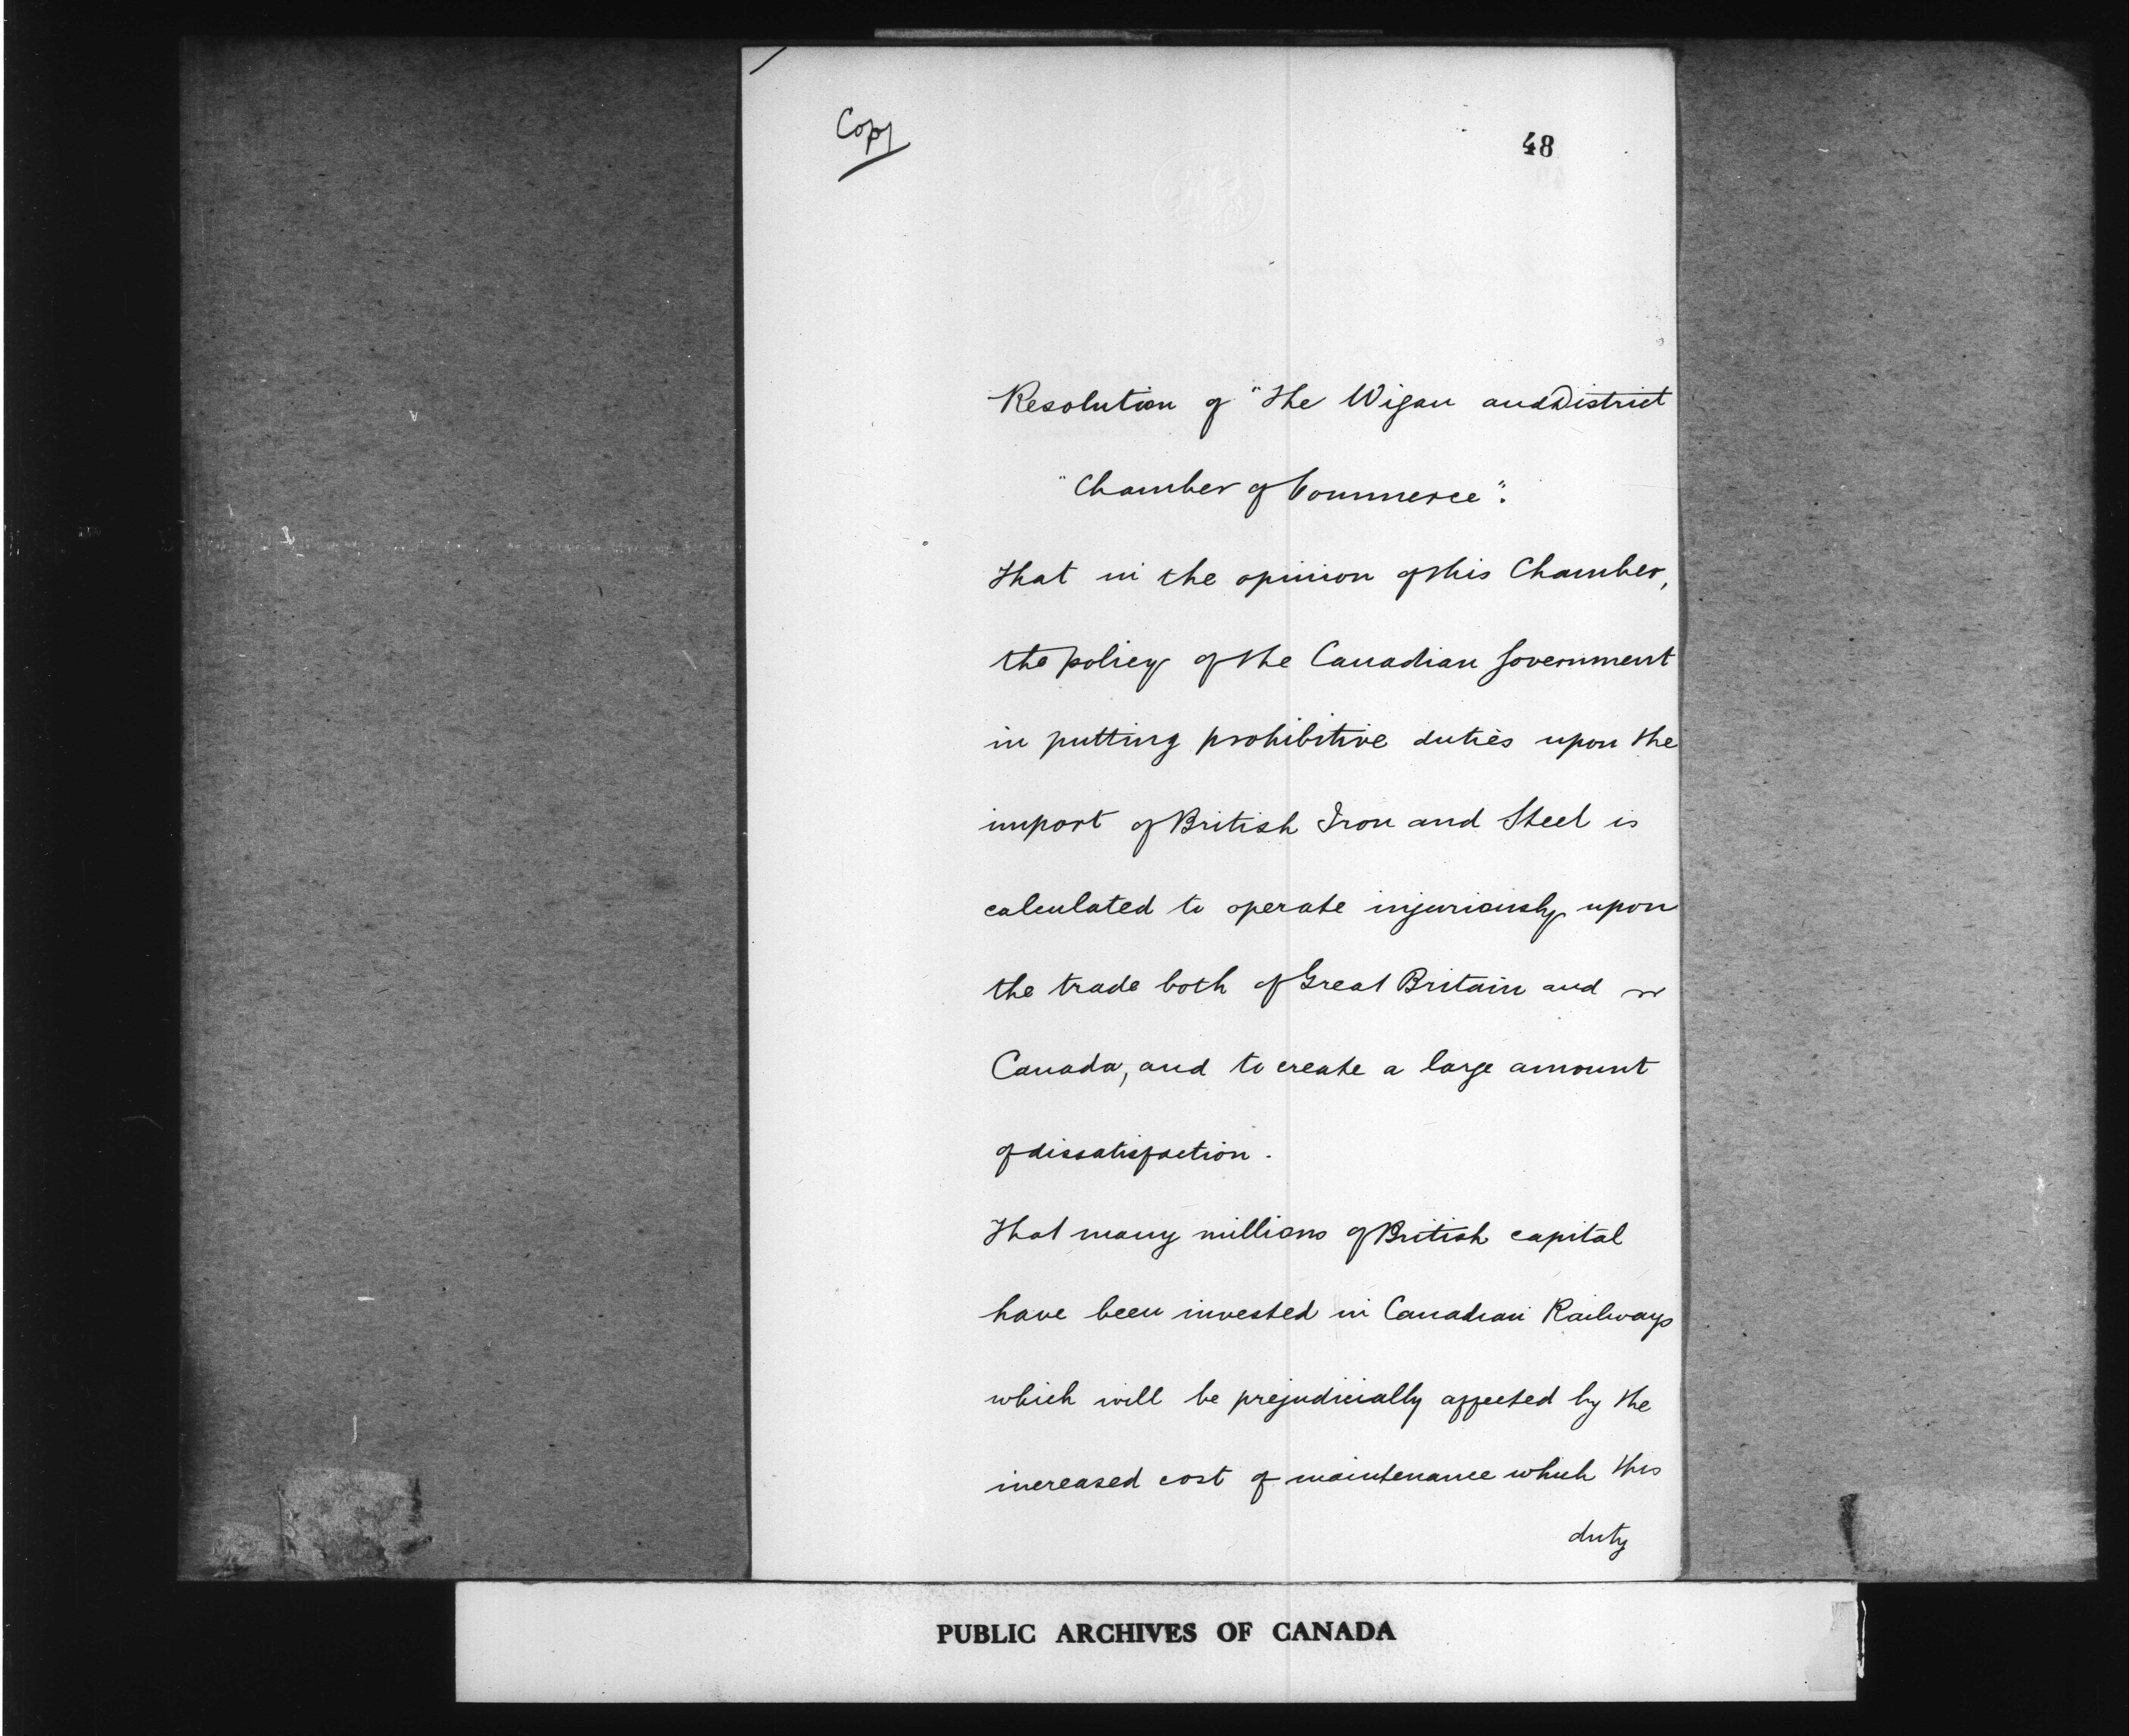 Copy
48
Resolution of "The Wigan and District
"Chamber of Commerce":
That in the opinion of this Chamber,
the policy of the Canadian Government
in putting prohibitive duties upon the
import of British Iron and Steel is
calculated to operate injuriously upon
the trade both of Great Britain and
Canada, and to create a large amount
of dissatisfaction.
That many millions of British capital
have been invested in Canadian Railways
which will be prejudicially affected by the
increased cost of maintenance which this
duty
PUBLIC ARCHIVES OF CANADA